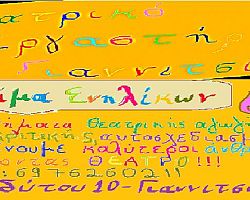 ατρικό
ργαστήρ
Γιαννιτσ
μα Ενηλίκων
ήματα θεατρικής αγωγή
κριτικής, αυτοσχεδιασ
νουμε καλύτεροι άνθρ
οντας ΘΕΑΤΡΟ!!!
: 6976260211
δύτου 10-Γιαννιτσ